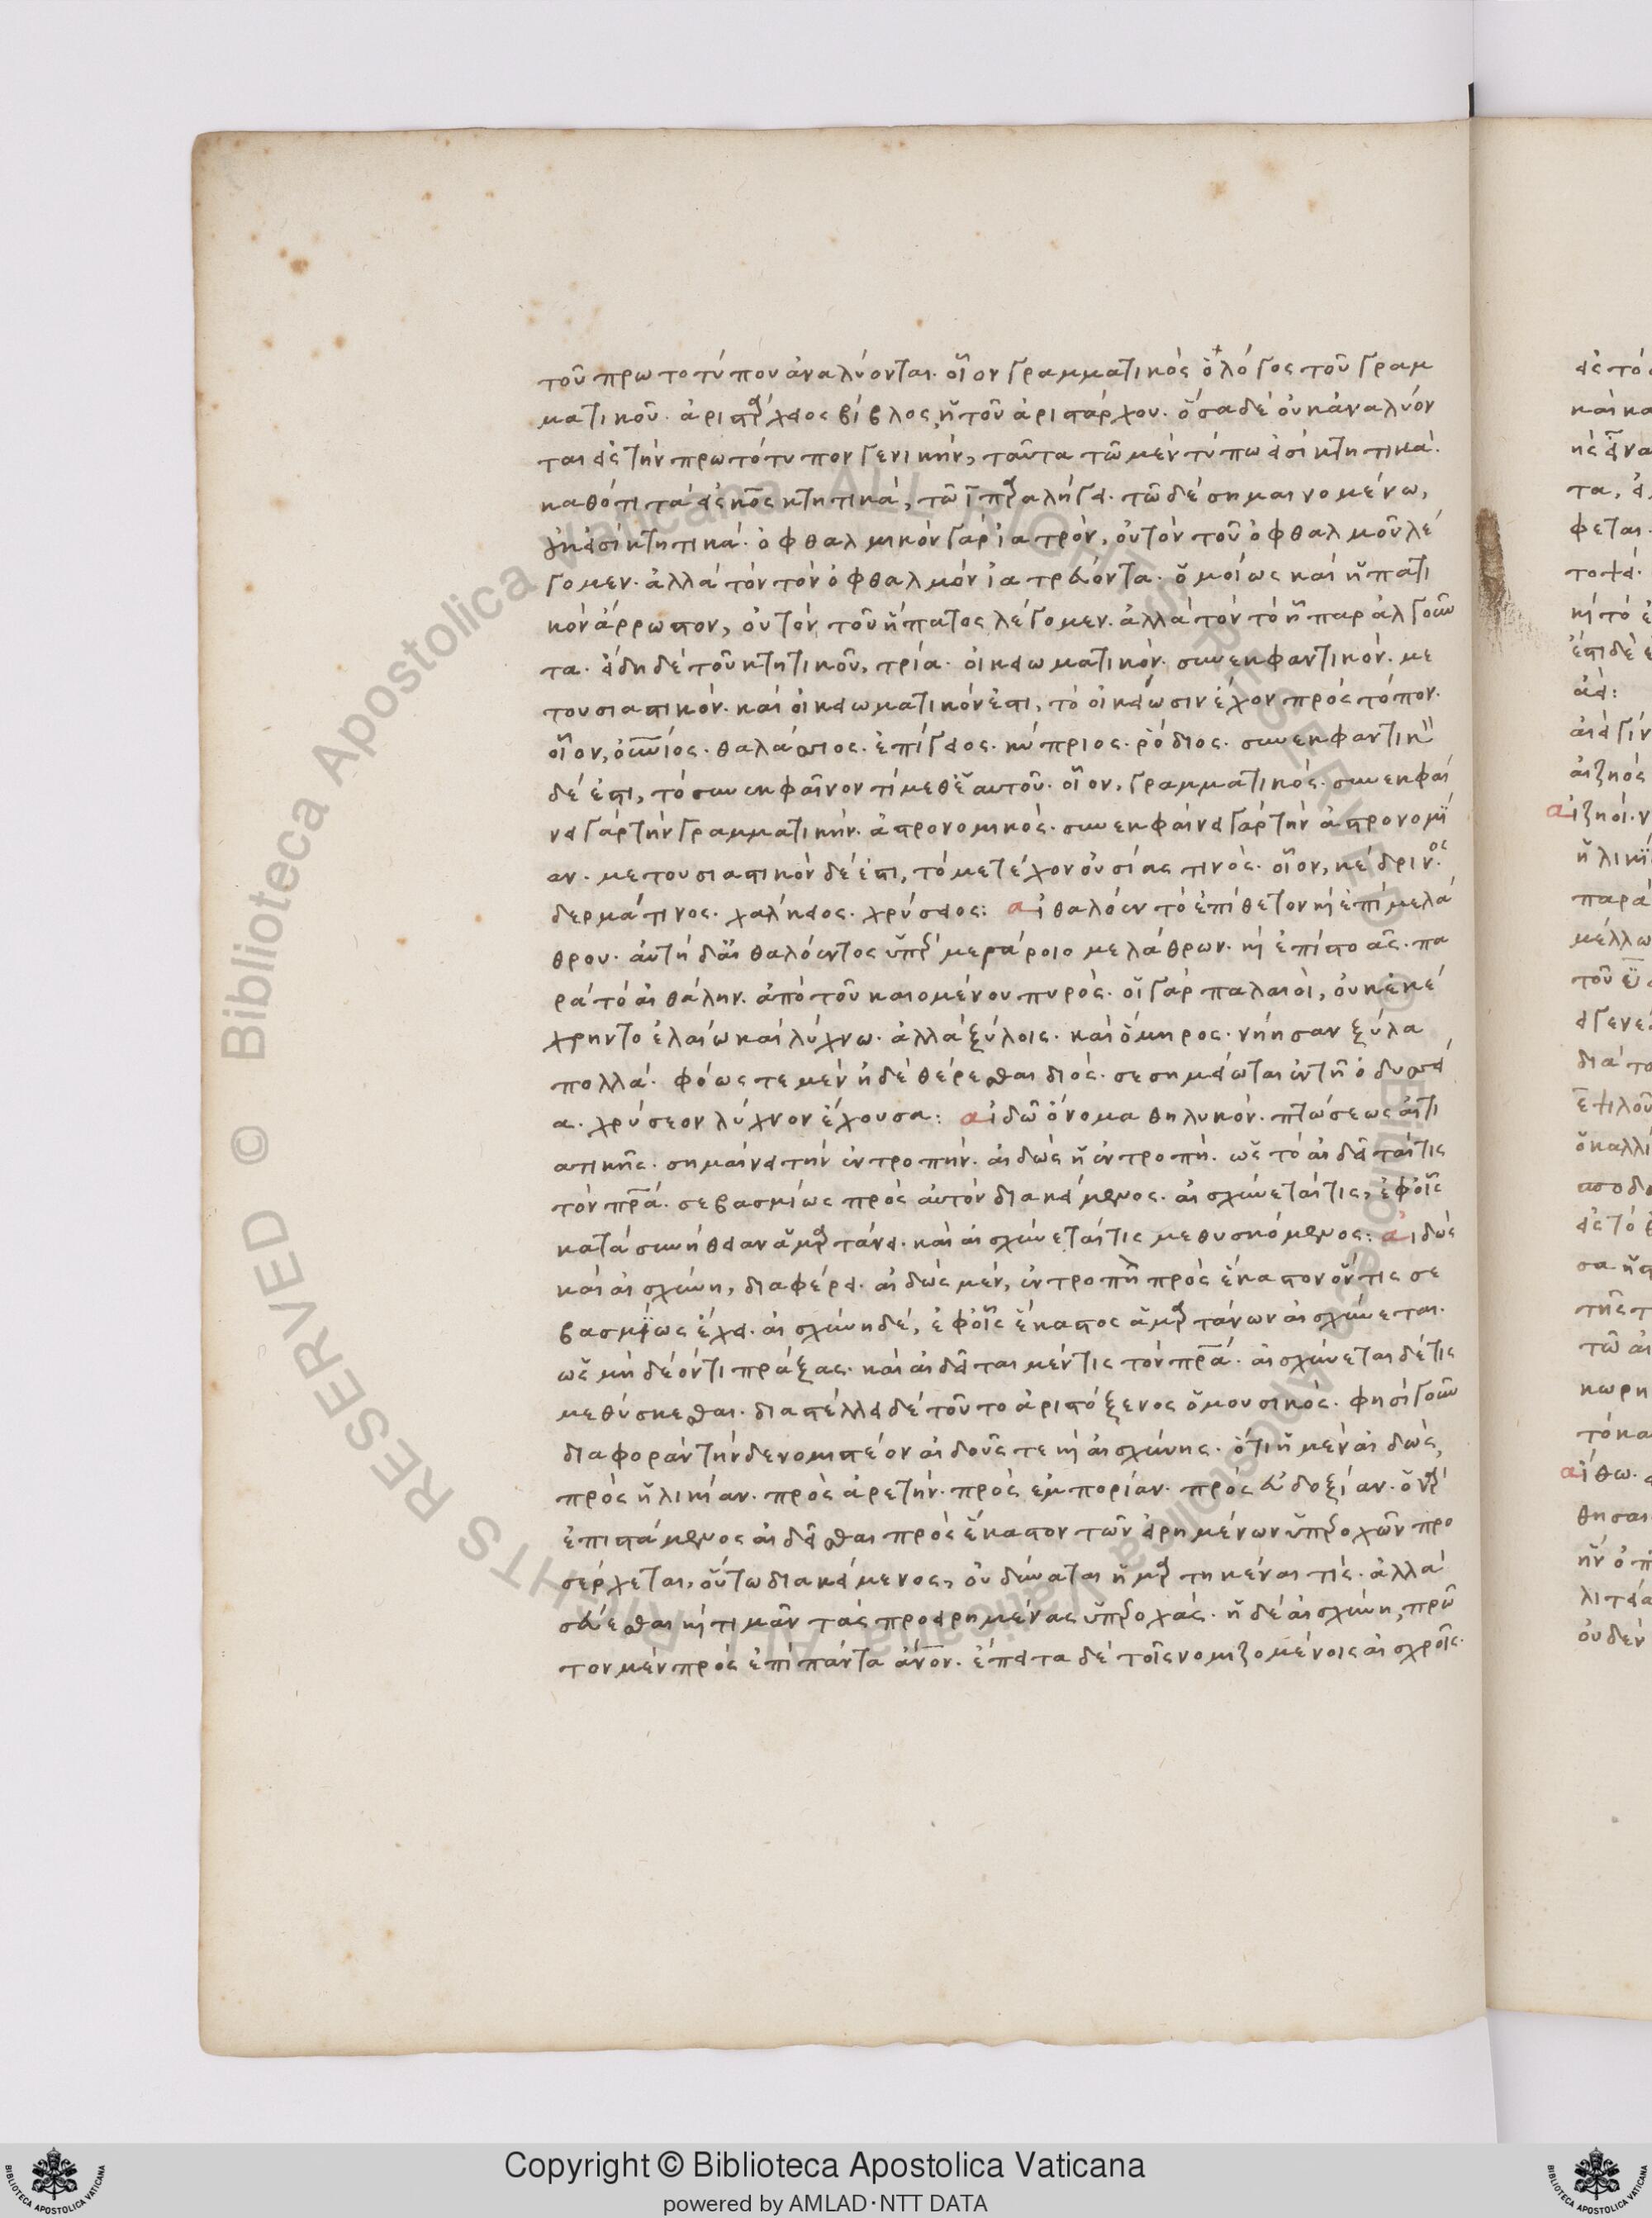 τοῦ πρωτοτύπου ἀναλύονται. οἷον γραμματικὸς ὁ λόγος τοῦ γραμ
ματικοῦ. ἀριστάρχειος βίβλος, ἡ τοῦ ἀριστάρχου. ὅσα δὲ οὐκ ἀναλύον
ται εἰς τὴν πρωτότυπον γενικήν, ταῦτα τῶ μὲν τύπω εἰσὶ κτητικά.
καθότι τὰ εἰς κος κτητικά, τῶ ι παραλήγει. τῶ δὲ σημαινομένω,
οὐκ εἰσὶ κτητικά. ὀφθαλμικὸν γὰρ ἰατρόν, οὐ τὸν τοῦ ὀφθαλμοῦ λέ
γομεν. ἀλλὰ τὸν τὸν ὀφθαλμὸν ἰατρεύοντα. ὁμοίως καὶ ἡπατι
κὸν ἄρρωστον, οὐ τὸν τοῦ ἥπατος λέγομεν. ἀλλὰ τὸν τὸ ἧπαρ ἀλγοῦν
τα. εἴδη δὲ τοῦ κτητικοῦ, τρία. οἰκειωματικόν. συνεκφαντικόν. με
τουσιαστικόν. καὶ οἰκειωματικὸν ἐστι, τὸ οἰκείωσιν ἔχον πρὸς τόπον.
οἷον, οὐνιος. θαλάσσιος. ἐπίγειος. κύπριος. ῥόδιος. συνεκφαντικὸν
δὲ ἐστι, τὸ συνεκφαῖνον τί μεθ' ἑαυτοῦ. οἷον, γραμματικός. συνεκφαί
νει γὰρ τὴν γραμματικήν. ἀστρονομικός. συνεκφαίνει γὰρ τὴν ἀστρονομί
αν. μετουσιαστικὸν δὲ ἐστι, τὸ μετέχον οὐσίας τινός. οἷον, κέδρινος.
δερμάτινος. χάλκειος. χρύσειος: αἰθαλόεν τὸ ἐπίθετον καὶ ἐπὶ μελά
θρου. αὐτὴ δ' αἰθαλόεντος ὑπὲρ μεγάροιο μελάθρων. καὶ ἐπὶ στοᾶς. πα
ρὰ τὸ αἰθάλην. ἀπὸ τοῦ καιομένου πυρός. οἱ γὰρ παλαιοὶ, οὐκ ἐκέ
χρηντο ἐλαίω καὶ λύχνω. ἀλλὰ ξύλοις. καὶ ὅμηρος. νήησαν ξύλα
πολλά. φόως τε μὲν ἠδὲ θέρεσθαι διός. σεσημείωται ἐν τῆ ὀδυσσεί
α. χρύσεον λύχνον ἔχουσα: αἰδῶ ὄνομα θηλυκόν. πτώσεως αἰτι
ατικῆς. σημαίνει τὴν ἐντροπήν. αἰδώς ἡ ἐντροπή. ὡς τὸ αἰδεῖται τίς
τὸν πρα. σεβασμίως πρὸς αὐτὸν διακείμενος. αἰσχύνεται τίς, ἐφ' οἷς
κατὰ συνήθειαν ἁμαρτάνει. καὶ αἰσχύνεται τίς μεθυσκόμενος: αἰδώς
καὶ αἰσχύνη, διαφέρει. αἰδώς μέν, ἐντροπὴ πρὸς ἕκαστον ὅν τις σε
βασμίως ἔχει. αἰσχύνη δέ, ἐφ' οἷς ἕκαστος ἁμαρτάνων αἰσχύνεται.
ὡς μὴ δέον τι πράξας. καὶ αἰδεῖται μέν τις τὸν πρα. αἰσχύνεται δέ τις
μεθύσκεσθαι. διαστέλλει δὲ τοῦτο ἀριστόξενος ὁ μουσικός. φησὶ γοῦν
διαφορὰν τήνδε νομιστέον αἰδοῦς τε καὶ αἰσχύνης. ὅτι ἡ μὲν αἰδώς,
πρὸς ἡλικίαν. πρὸς ἀρετήν. πρὸς ἐμπορίαν. πρὸς εὐδοξίαν. ὁ γὰρ
ἐπιστάμενος αἰδεῖσθαι πρὸς ἕκαστον τῶν εἰρημένων ὑπεροχῶν προ
σέρχεται, οὕτω διακείμενος, οὐ δύναται ἡμαρτηκέναι τίς. ἀλλὰ
σέβεσθαι καὶ τιμᾶν τὰς προειρημένας ὑπεροχάς. ἡ δὲ αἰσχύνη, πρῶ
τον μὲν πρὸς ἐπὶ πάντα ανον. ἔπειτα δὲ τοῖς νομιζομένοις αἰσχροῖς.
Copyright © Biblioteca Apostolica Vaticana
powered by AMLAD·NTT DATA